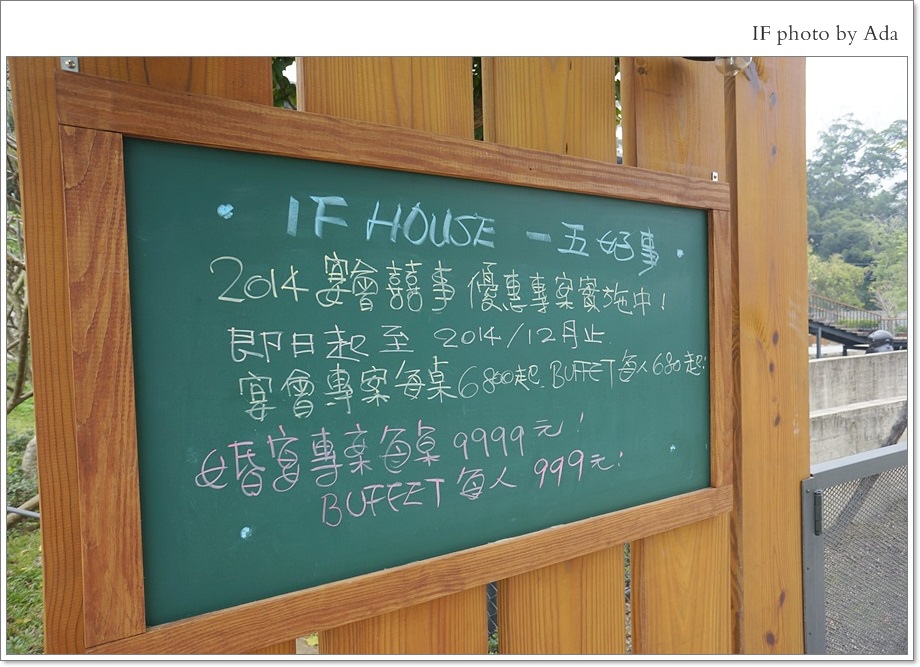 IF photo by Ada
IF HOUSE 一五好事
2014宴會囍事優惠專案實施中！
即日起至 2014/12月止.
宴會專案每桌6800起. BUFFET每人680起!
婚宴專案每桌 9999元!
BUFFET 每人 999元!